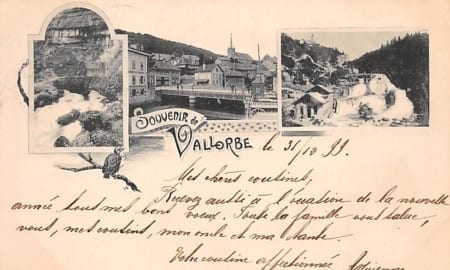 Souvenir de
Vallorbe le 31/12 99.
Mes chères cousines,
Recevez aussi à l'occasion de la nouvelle
année tous mes bons voeux. Toute la famille vous salue,
vous, mes cousins, mon oncle et ma tante.
Votre cousine affectionnée